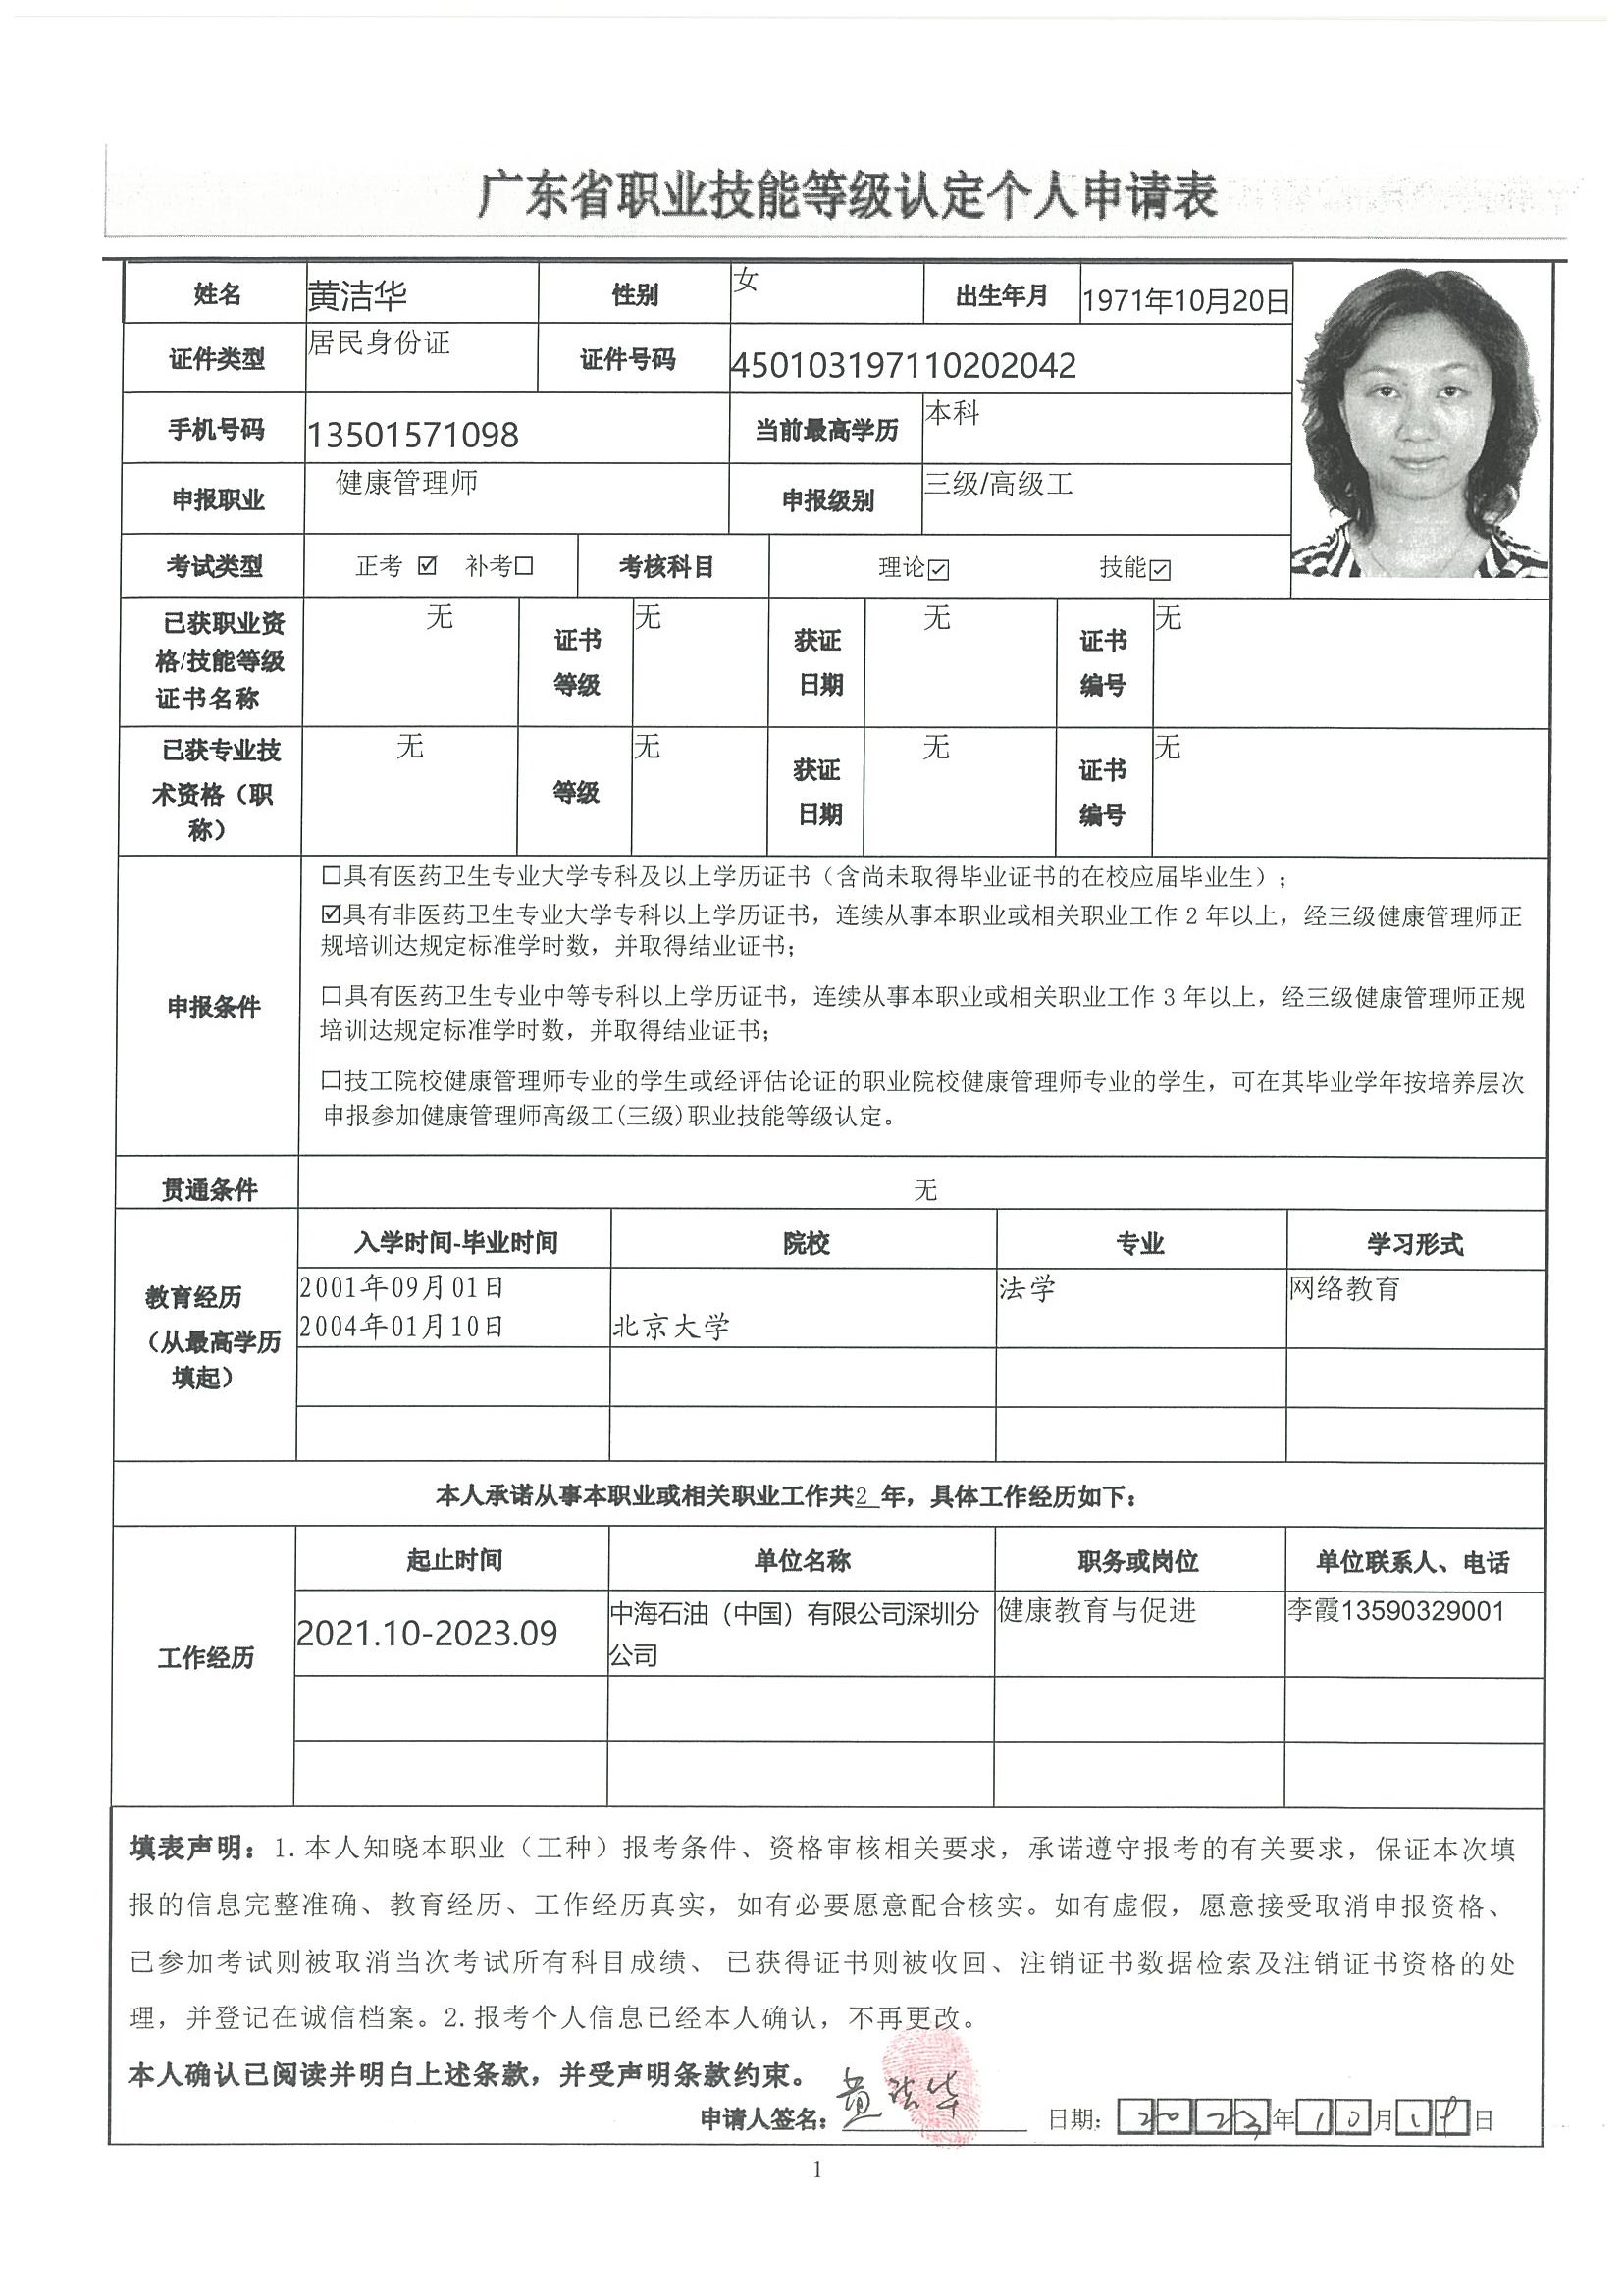 广东省职业技能等级认定个人申请表
姓名 黄洁华 性别 女 出生年月 1971年10月20日
证件类型 居民身份证 证件号码 450103197110202042
手机号码 13501571098 当前最高学历 本科
申报职业 健康管理师 申报级别 三级/高级工
考试类型 正考 ☑ 补考☐ 考核科目 理论☑ 技能☑
已获职业资格/技能等级证书名称 无 证书等级 无 获证日期 无 证书编号 无
已获专业技术资格（职称） 无 等级 无 获证日期 无 证书编号 无
申报条件
☐具有医药卫生专业大学专科及以上学历证书（含尚未取得毕业证书的在校应届毕业生）；
☑具有非医药卫生专业大学专科以上学历证书，连续从事本职业或相关职业工作 2 年以上，经三级健康管理师正
规培训达规定标准学时数，并取得结业证书；
☐具有医药卫生专业中等专科以上学历证书，连续从事本职业或相关职业工作 3 年以上，经三级健康管理师正规
培训达规定标准学时数，并取得结业证书；
☐技工院校健康管理师专业的学生或经评估论证的职业院校健康管理师专业的学生，可在其毕业学年按培养层次
申报参加健康管理师高级工(三级)职业技能等级认定。
贯通条件 无
教育经历（从最高学历填起）
入学时间-毕业时间 院校 专业 学习形式
2001年09月01日 法学 网络教育
2004年01月10日 北京大学
本人承诺从事本职业或相关职业工作共2 年，具体工作经历如下：
工作经历
起止时间 单位名称 职务或岗位 单位联系人、电话
2021.10-2023.09 中海石油（中国）有限公司深圳分公司 健康教育与促进 李霞13590329001
填表声明：1.本人知晓本职业（工种）报考条件、资格审核相关要求，承诺遵守报考的有关要求，保证本次填
报的信息完整准确、教育经历、工作经历真实，如有必要愿意配合核实。如有虚假，愿意接受取消申报资格、
已参加考试则被取消当次考试所有科目成绩、 已获得证书则被收回、注销证书数据检索及注销证书资格的处
理，并登记在诚信档案。2.报考个人信息已经本人确认，不再更改。
本人确认已阅读并明白上述条款，并受声明条款约束。
申请人签名：黄洁华 日期：2023年10月19日
1